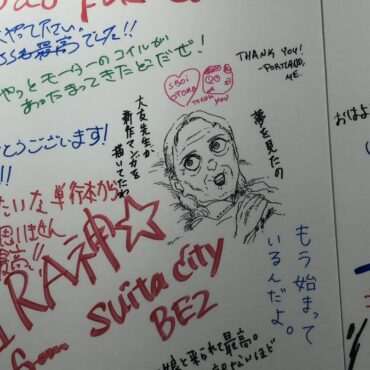 やって下さい
も最高でした!!
やっとモーターのコイルが
あったまってきたとこだぜ!
THANK YOU!
-PORTLAND,
ME.
SBOI
OTOMO
THANK
YOU
夢を見たの
大友先生が
新作マンガを
描いてたわ
とうございます!
!!!
たいな単行本から
最高!!
RA神☆
suita city
BE2
もう始まって
いるんだよ。
おはよ
娘と来られて最高。